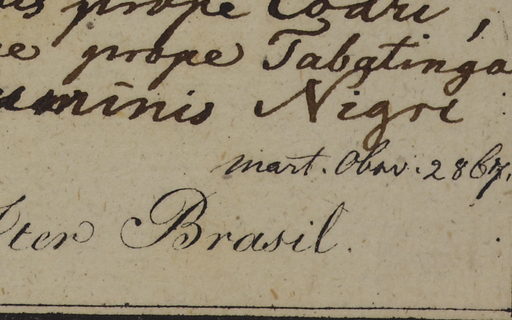 prope Codri,
prope Tabatinga
uminis Nigri
Mart. Obsv. 2867.
Iter Brasil.